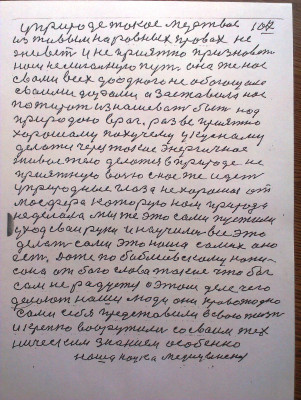 у природе такое мертвое 1082
из живым на ровных правах не
живет и не приятно призноват
нам нелиганную пут. она же нас
своими всех до одного не обогощала
своими дарами а заставила нас
потихот изнашеват быт над
природаю враг, разве приятно
хорошему пахучему укусному
делат через такие энергичное
живое тело делат в природе не
приятную вонь она же идет
у природные глаза не хороша ат
мосфера которую нам природа
не делала мы же это сами пустили
у ход свои руки и научилис все это
делат сами это наша самих ано
ест, даже по библевскому напи
сано от бога слова такие что бог
сам не радует о этом деле чего
делают наши люди они
сами себя представили в свою жизн
и крепко вооружили со своим тех
ническим знанием особенно
наша наука медицинская